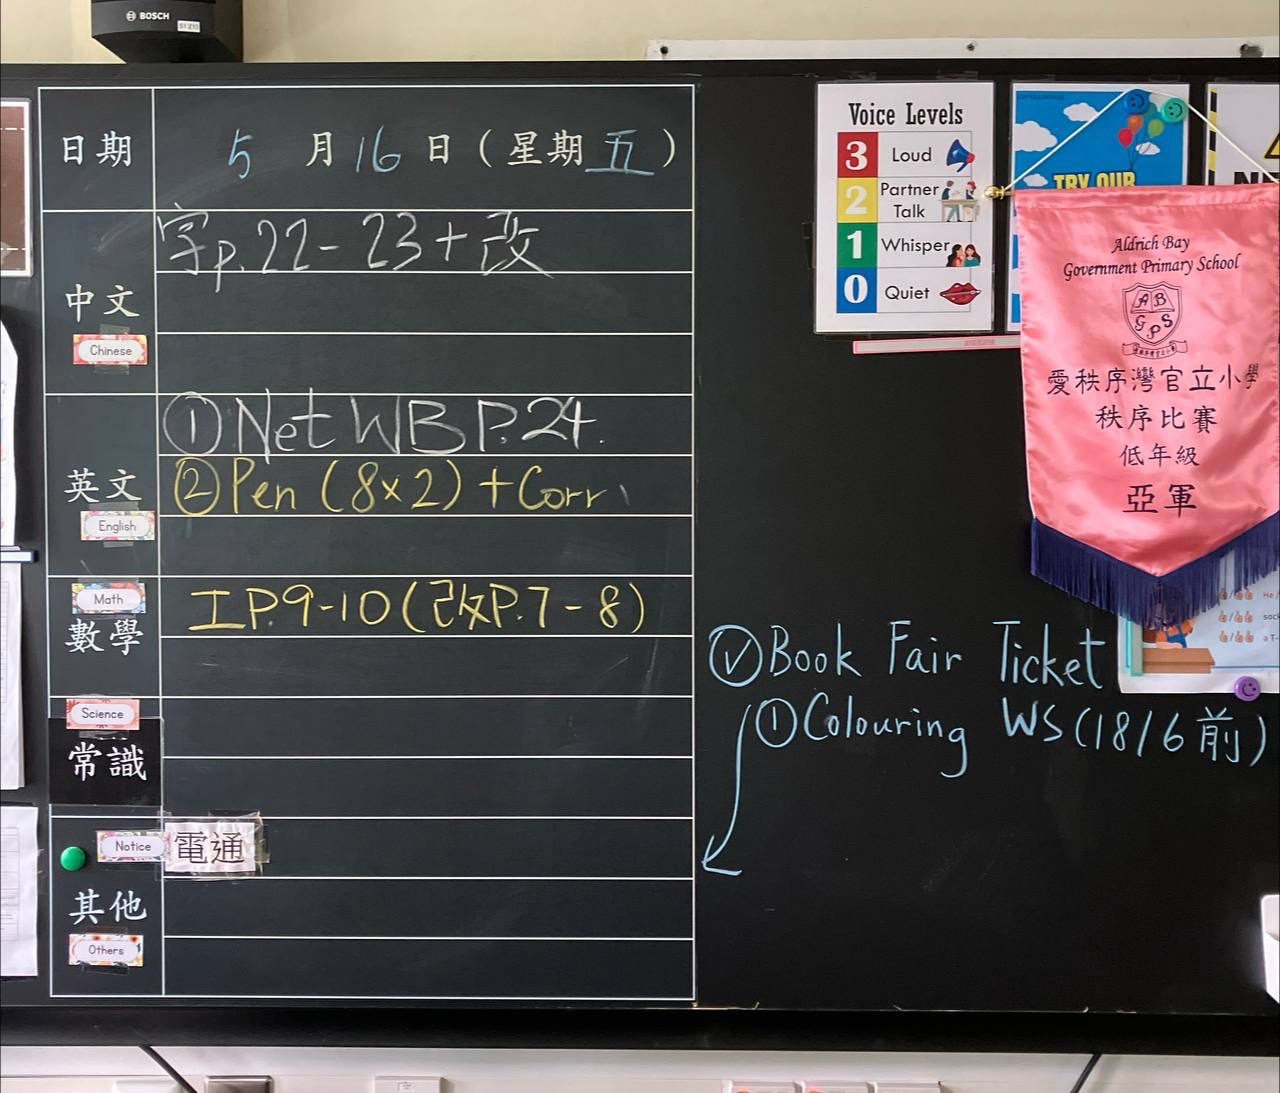 BOSCH
日期
5月16日(星期五)
中文
Chinese
字p.22-23+改
英文
English
①Net WB P.24.
②Pen (8×2)+Corr
Math
數學
工P.9-10(改P.7-8)
Science
常識
Notice
電通
其他
Others
Ⓥ Book Fair Ticket
①Colouring WS(18/6前)
Voice Levels
3 Loud
2 Partner Talk
1 Whisper
0 Quiet
TRY OUR
Aldrich Bay
Government Primary School
A B
G P S
愛秩序灣官立小學
秩序比賽
低年級
亞軍
He /